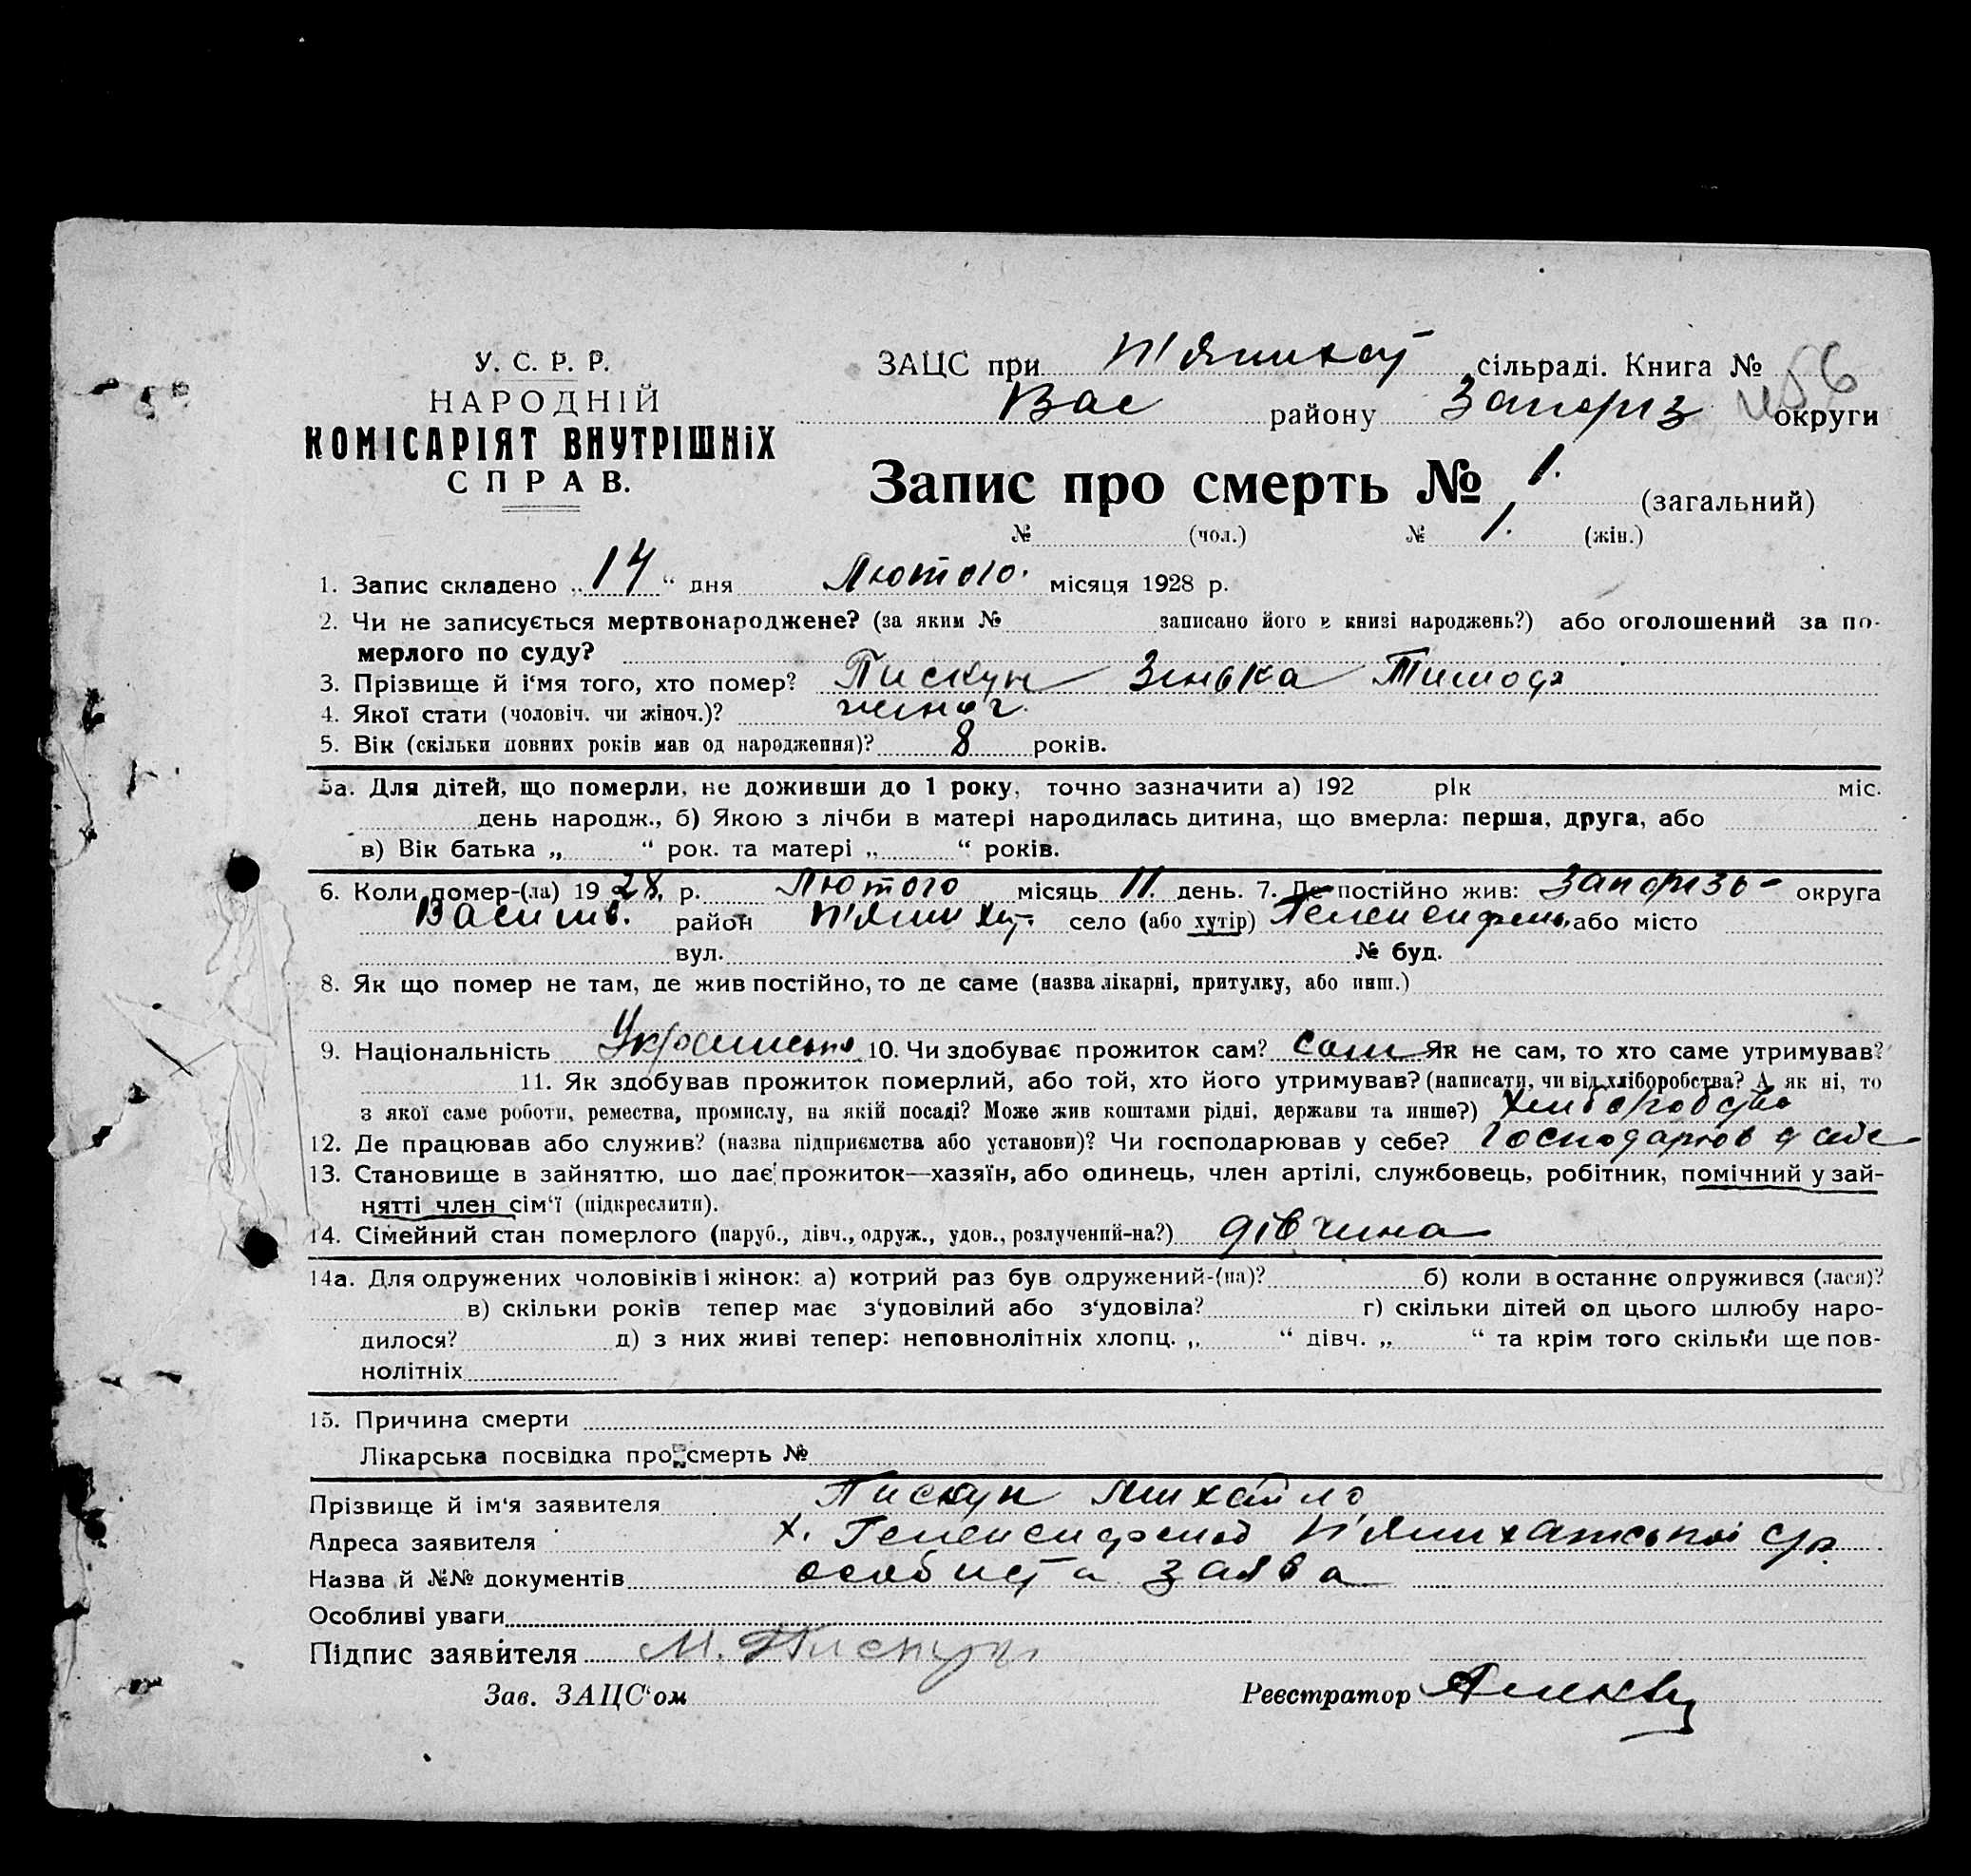 У. С. Р. Р.
НАРОДНІЙ
КОМІСАРІЯТ ВНУТРІШНІХ
СПРАВ.
ЗАЦС при П'ятихат сільраді. Книга №
Вас району Запоріз округи
Запис про смерть № 1. (загальний)
№ (чол.) № 1. (жін.)
1. Запис складено „14“ дня Лютого. місяця 1928 р.
2. Чи не записується мертвонароджене? (за яким № записано його в книзі народжень?) або оголошений за по-
мерлого по суду?
3. Прізвище й і'мя того, хто помер? Пискун Зінька Тимоф
4. Якої стати (чоловіч. чи жіноч.)? жіноч.
5. Вік (скільки повних років мав од народження)? 8 років.
5а. Для дітей, що померли, не доживши до 1 року, точно зазначити а) 192 рік міс.
день народж., б) Якою з лічби в матері народилась дитина, що вмерла: перша, друга, або
в) Вік батька „ “ рок. та матері „ “ років.
6. Коли помер-(ла) 1928. р. Лютого місяць 11. день. 7. Де постійно жив: Запорізь- округа
Василів. район П'ятихат. село (або хутір) або місто
вул. № буд.
8. Як що помер не там, де жив постійно, то де саме (назва лікарні, притулку, або инш.)
9. Національність 10. Чи здобуває прожиток сам? сам Як не сам, то хто саме утримував?
11. Як здобував прожиток померлий, або той, хто його утримував? (написати, чи від хліборобства? А як ні, то
з якої саме роботи, ремества, промислу, на якій посаді? Може жив коштами рідні, держави та инше?) Хліборобство
12. Де працював або служив? (назва підприємства або установи)? Чи господарював у себе? Господарюв у себе
13. Становище в зайняттю, що дає прожиток—хазяїн, або одинець, член артілі, службовець, робітник, помічний у зай-
нятті член сім'ї (підкреслити).
14. Сімейний стан померлого (паруб., дівч., одруж., удов., розлучений-на?) дівчина
14а. Для одружених чоловіків і жінок: а) котрий раз був одружений-(на)? б) коли в останнє одружився (лася)?
в) скільки років тепер має з'удовілий або з'удовіла? г) скільки дітей од цього шлюбу наро-
дилося? д) з них живі тепер: неповнолітніх хлопц. „ “ дівч. „ “ та крім того скільки ще пов-
нолітніх
15. Причина смерти
Лікарська посвідка про смерть №
Прізвище й ім'я заявителя Пискун Михайло
Адреса заявителя х. П'ятихатської с/р.
Назва й №№ документів особиста заява
Особливі уваги
Підпис заявителя М. Пискун
Зав. ЗАЦС'ом Реєстратор